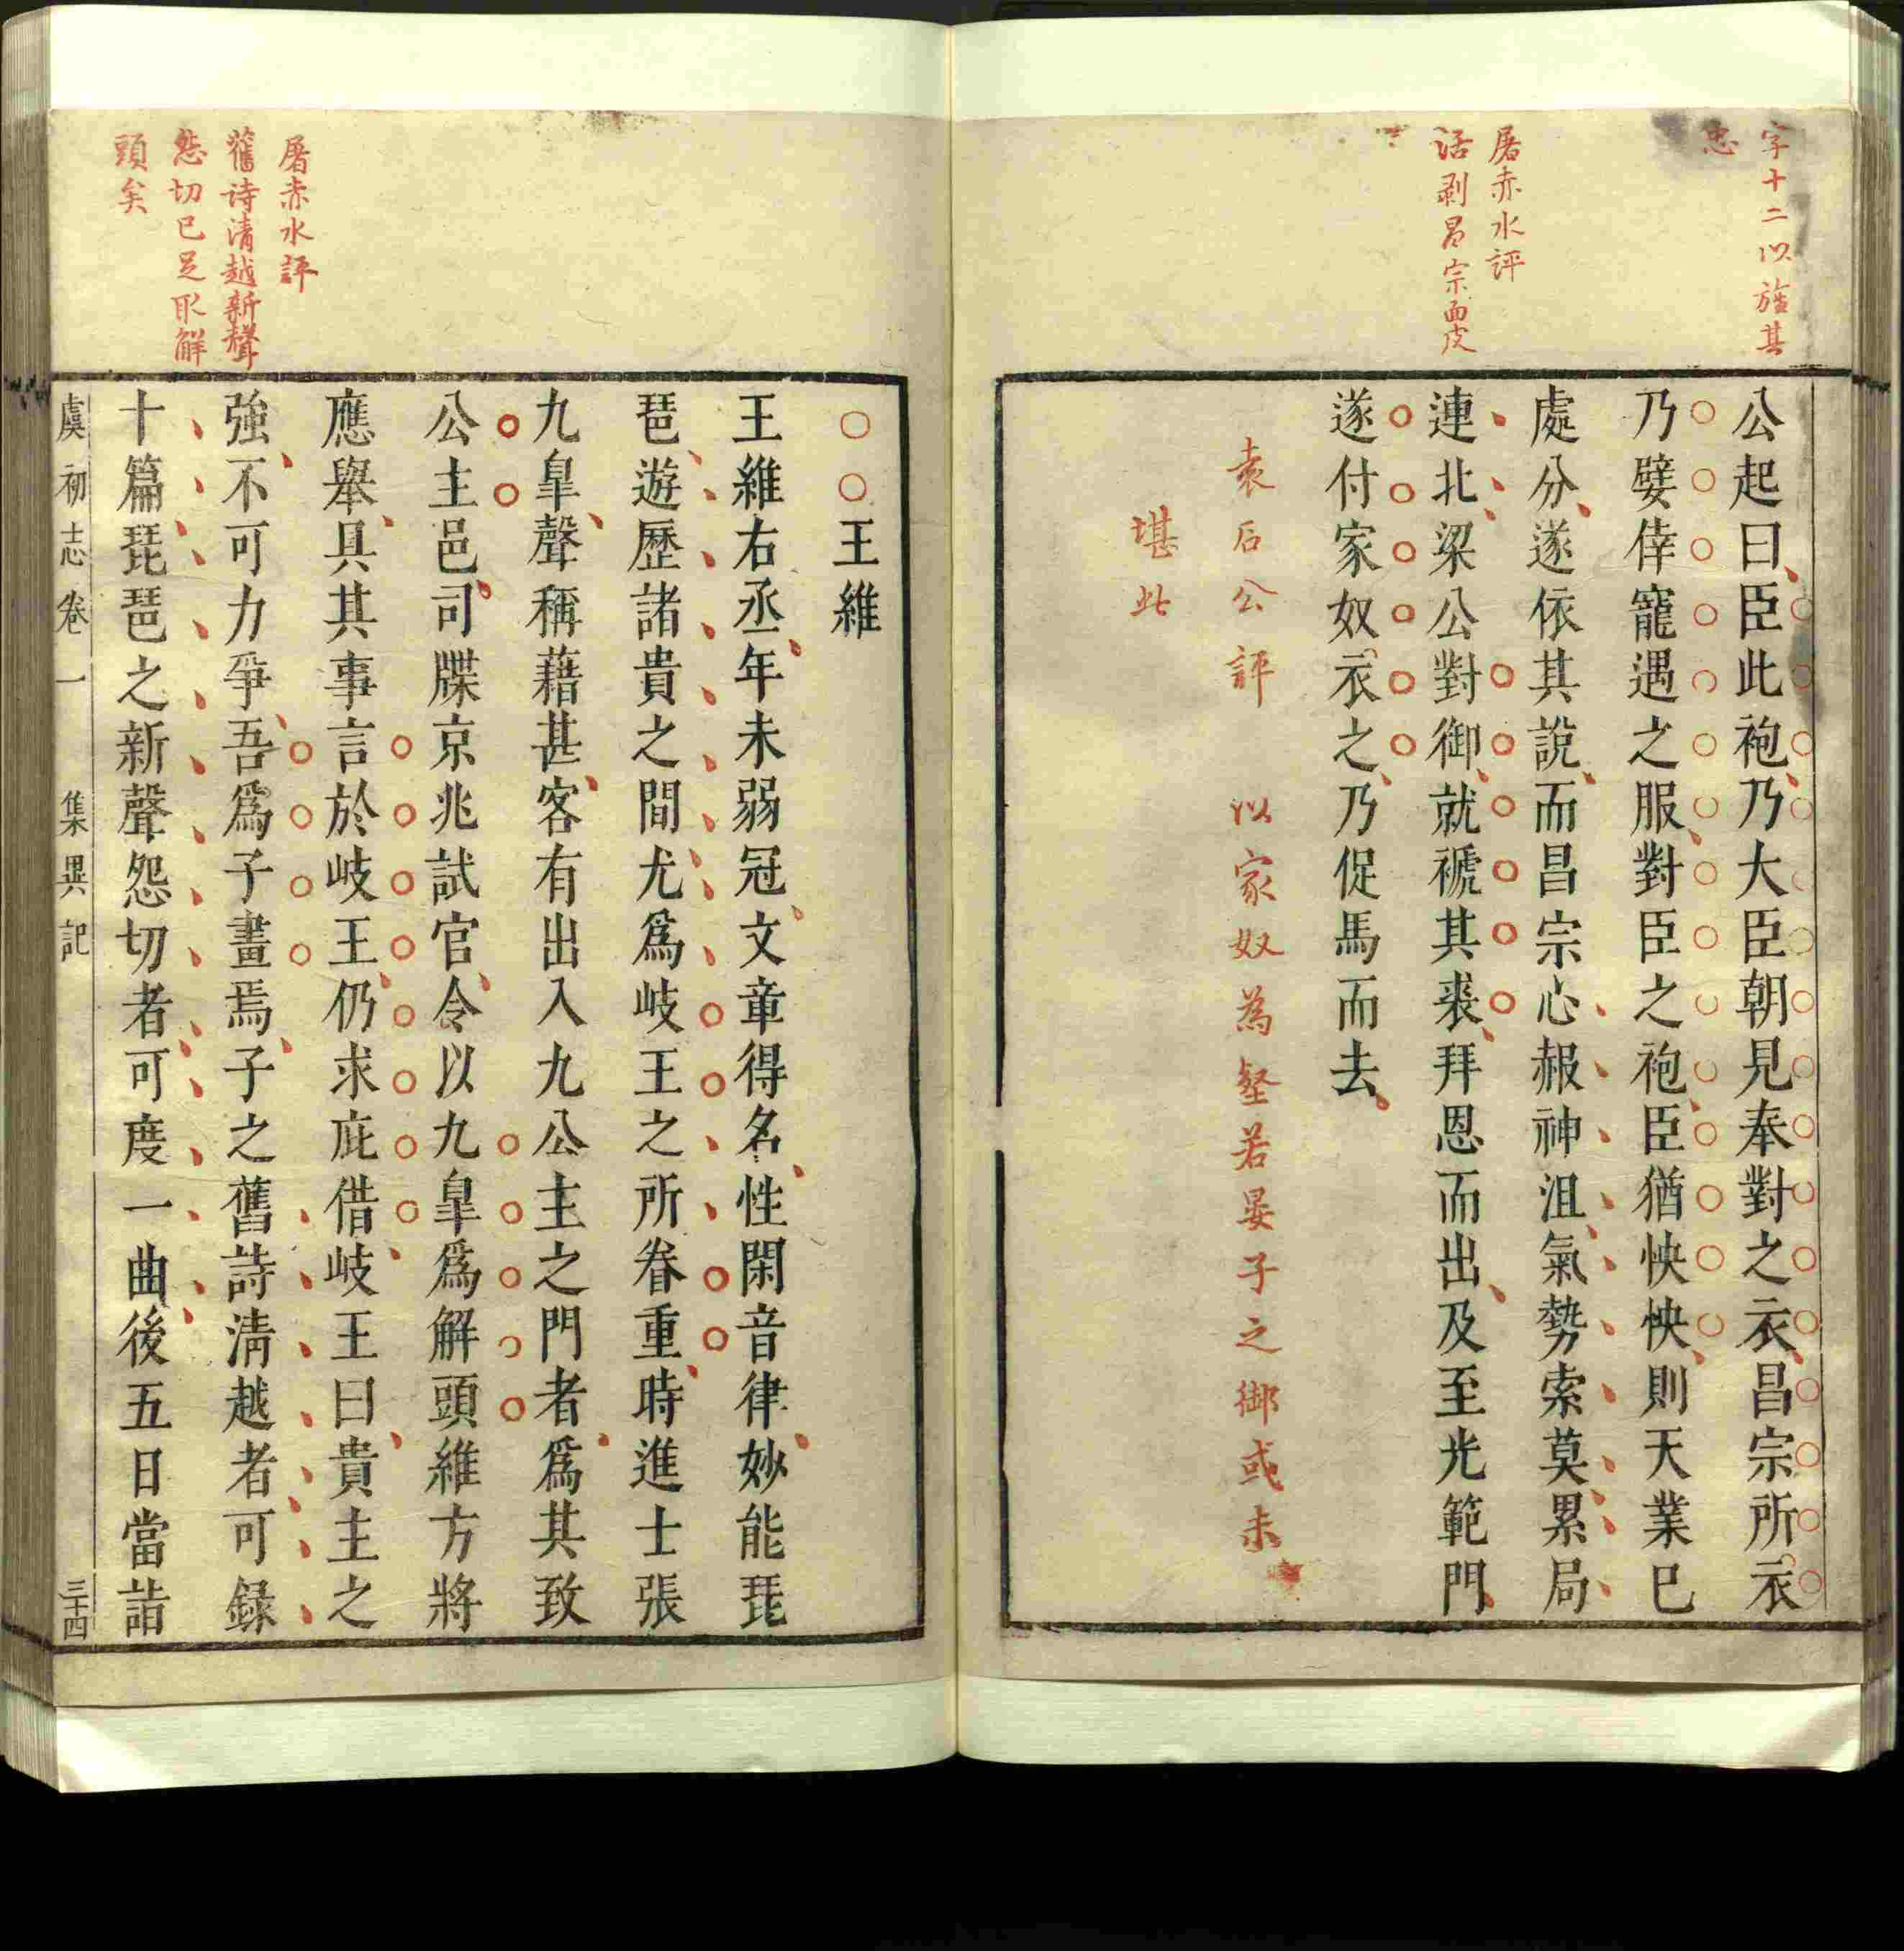 字十二以旌其
忠
屠赤水評
活剥昌宗面皮
公起曰臣此袍乃大臣朝見奉對之衣昌宗所衣
乃嬖倖寵遇之服對臣之袍臣猶怏怏則天業已
處分遂依其說而昌宗心赧神沮氣勢索莫累局
連北梁公對御就褫其裘拜恩而出及至光範門
遂付家奴衣之乃促馬而去
袁石公評 以家奴為壑若晏子之御或未
堪此
屠赤水評
舊诗清越新聲
愁切已足取解
頭矣
○○王維
王維右丞年未弱冠文章得名性閑音律妙能琵
琶遊歷諸貴之間尤爲岐王之所眷重時進士張
九臯聲稱藉甚客有出入九公主之門者爲其致
公主邑司牒京兆試官令以九臯爲解頭維方將
應舉具其事言於岐王仍求庇借岐王曰貴主之
強不可力爭吾爲子畫焉子之舊詩淸越者可録
十篇琵琶之新聲怨切者可度一曲後五日當詣
虞初志卷一 集異記 三十四